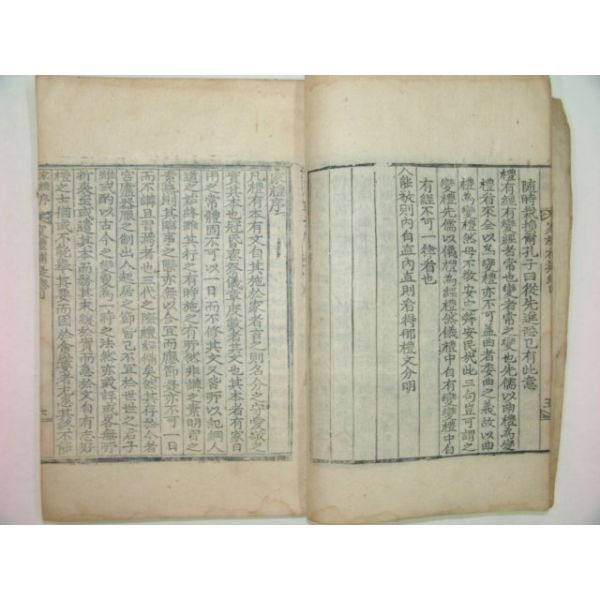 隨時裁損爾孔子曰從先進恐已有此意
禮有經有變經者常也變者常之變也先儒以曲禮為變
禮看來全以為變禮亦不可蓋曲者委曲之義故以曲
禮為變禮然毋不敬安定辭安民哉此三句豈可謂之
變禮先儒以儀禮為經禮然儀禮中自有變變禮中自
有經不可一律看也
人能敬則內自直內直則看得那禮文分明
家禮序
凡禮有本有文自其施於家者言之則名分之守愛敬之
實其本也冠昏喪祭儀章度數者其文也其本者有家日
用之常體固不可以一日而不修其文又皆所以紀綱人
道之始終雖其行之有時施之有所然非講之素明習之
素熟則其臨事之際亦無以合宜而應節是亦不可一日
而不講且習焉者也三代之際禮經備矣然其存於今者
宮廬器服之制出入起居之節皆已不宜於世世之君子
雖或酌以古今之變更為一時之法然亦或詳或略無所
折衷至或遺其本而務其末緩於實而急於文自有志好
禮之士猶或不能舉其要而困於貧窶者尤患其終不能
家禮序